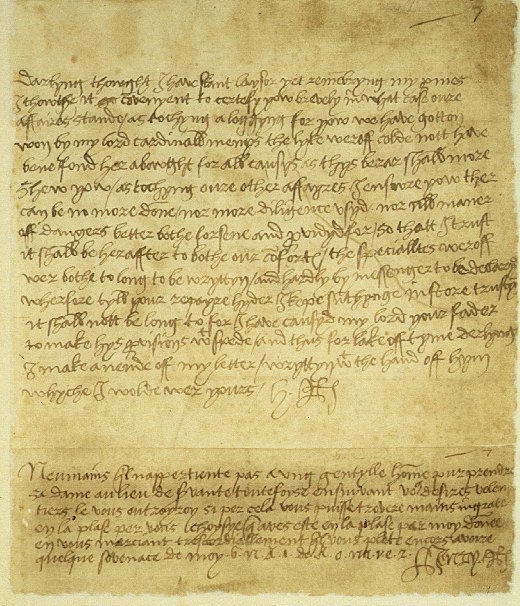 Darlyng thowght I have skant laysor yet remembryng my promes
I thowthe it covenyent to certefy yow brevely in what case oure
affaires stande / as tochyng a loggyng for yow we have gotton
won by my lord cardinalls menys the lyke weroff colde nott have
bene fond her abowght for all causys as thys berar shall more
shew yow / as tochyng oure other affayres I ensure yow ther
can be no more done / nor more diligence usyd nor all maner
off dangers better bothe forsene and provydyd for / so thatt I trust
it shalbe herafter to bothe our coforte / the specialltes weroff
wer bothe to long to be wryttyn / and hardly by messenger to be declaryd
wherfore tyll your repayre hyder I kepe sumthynge in store trustyng
it shall nott be long to for I have causyd my lord your fader
to make hys provisions wt spede / and thus for lake off tyme derlyng
I make a nende off my letter / wryttyn wt the hand off hym
whyche I wolde wer yours / H. R
Neumains qil n appertiente pas a ung gentylle home pur prendre
sa dame au lieu de toutefoise ensuivant vo desires volen
tiers le vous outroyroy si per cela vous puisse trevere mains ingrate
en la plase per vous choysye q aves este en la plase par moy donee
en vous merciant tres cordiallement qil vous plete encors avoire
quelque sovenace de moy .
Henry R